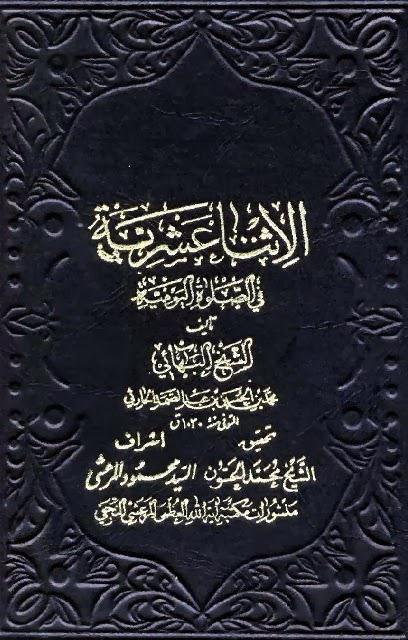 الإثنا عشرية
في الصلوة اليومية
تأليف
الشيخ البهائي
محمد بن الحسين بن عبد الصمد الحارثي
المتوفى سنة ١٠٣٠ ق
تحقيق اشراف
الشيخ محمد الحسون السيد محمود المرعشي
منشورات مكتبة آية الله العظمى المرعشي النجفي